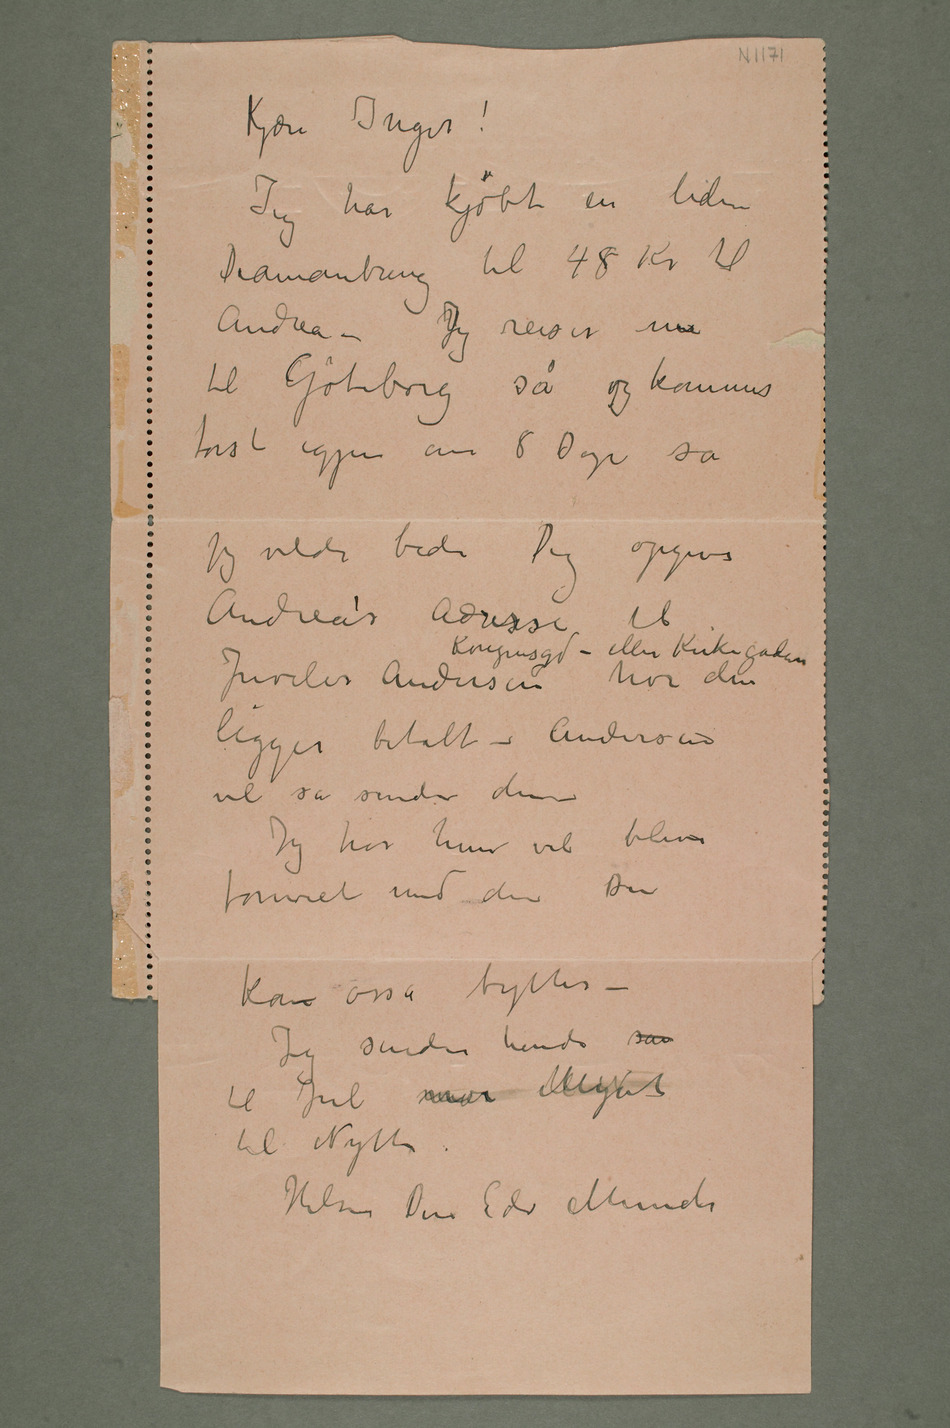 N 1171
Kjære Inger!
Jeg har kjöbt en liden
Diamantring til 48 Kr til
Andrea – Jeg reiser nu
til Göteborg så og kommer
først igjen om 8 Dage sa
jeg vilde bede Dig opgive
Andrea's Adresse til
Kongensgd – eller Kirkegaden
Juveler Andersen hvor den
ligger betalt – Andersen
vil sa sende den
Jeg tror hun vil blive
fornøiet med den Den
kan ossa byttes –
Jeg sender hende
til Jul
til Nytte.
Hilsen Din Edv Munch